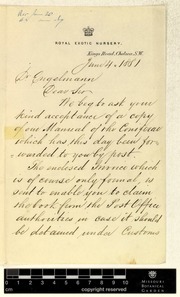 ROYAL EXOTIC NURSERY,
Kings Road, Chelsea, S.W.
June 4. 1881
Dr Engelmann
Dear Sir
We beg to ask your
kind acceptance of a copy
of our Manual of the Coniferae
which has this day been for-
warded to you by post.
The enclosed Invoice which
is of course only formal, is
sent to enable you to claim
the book from the Post Office
authorities in case it should
be detained under Customs
MISSOURI
BOTANICAL
GARDEN